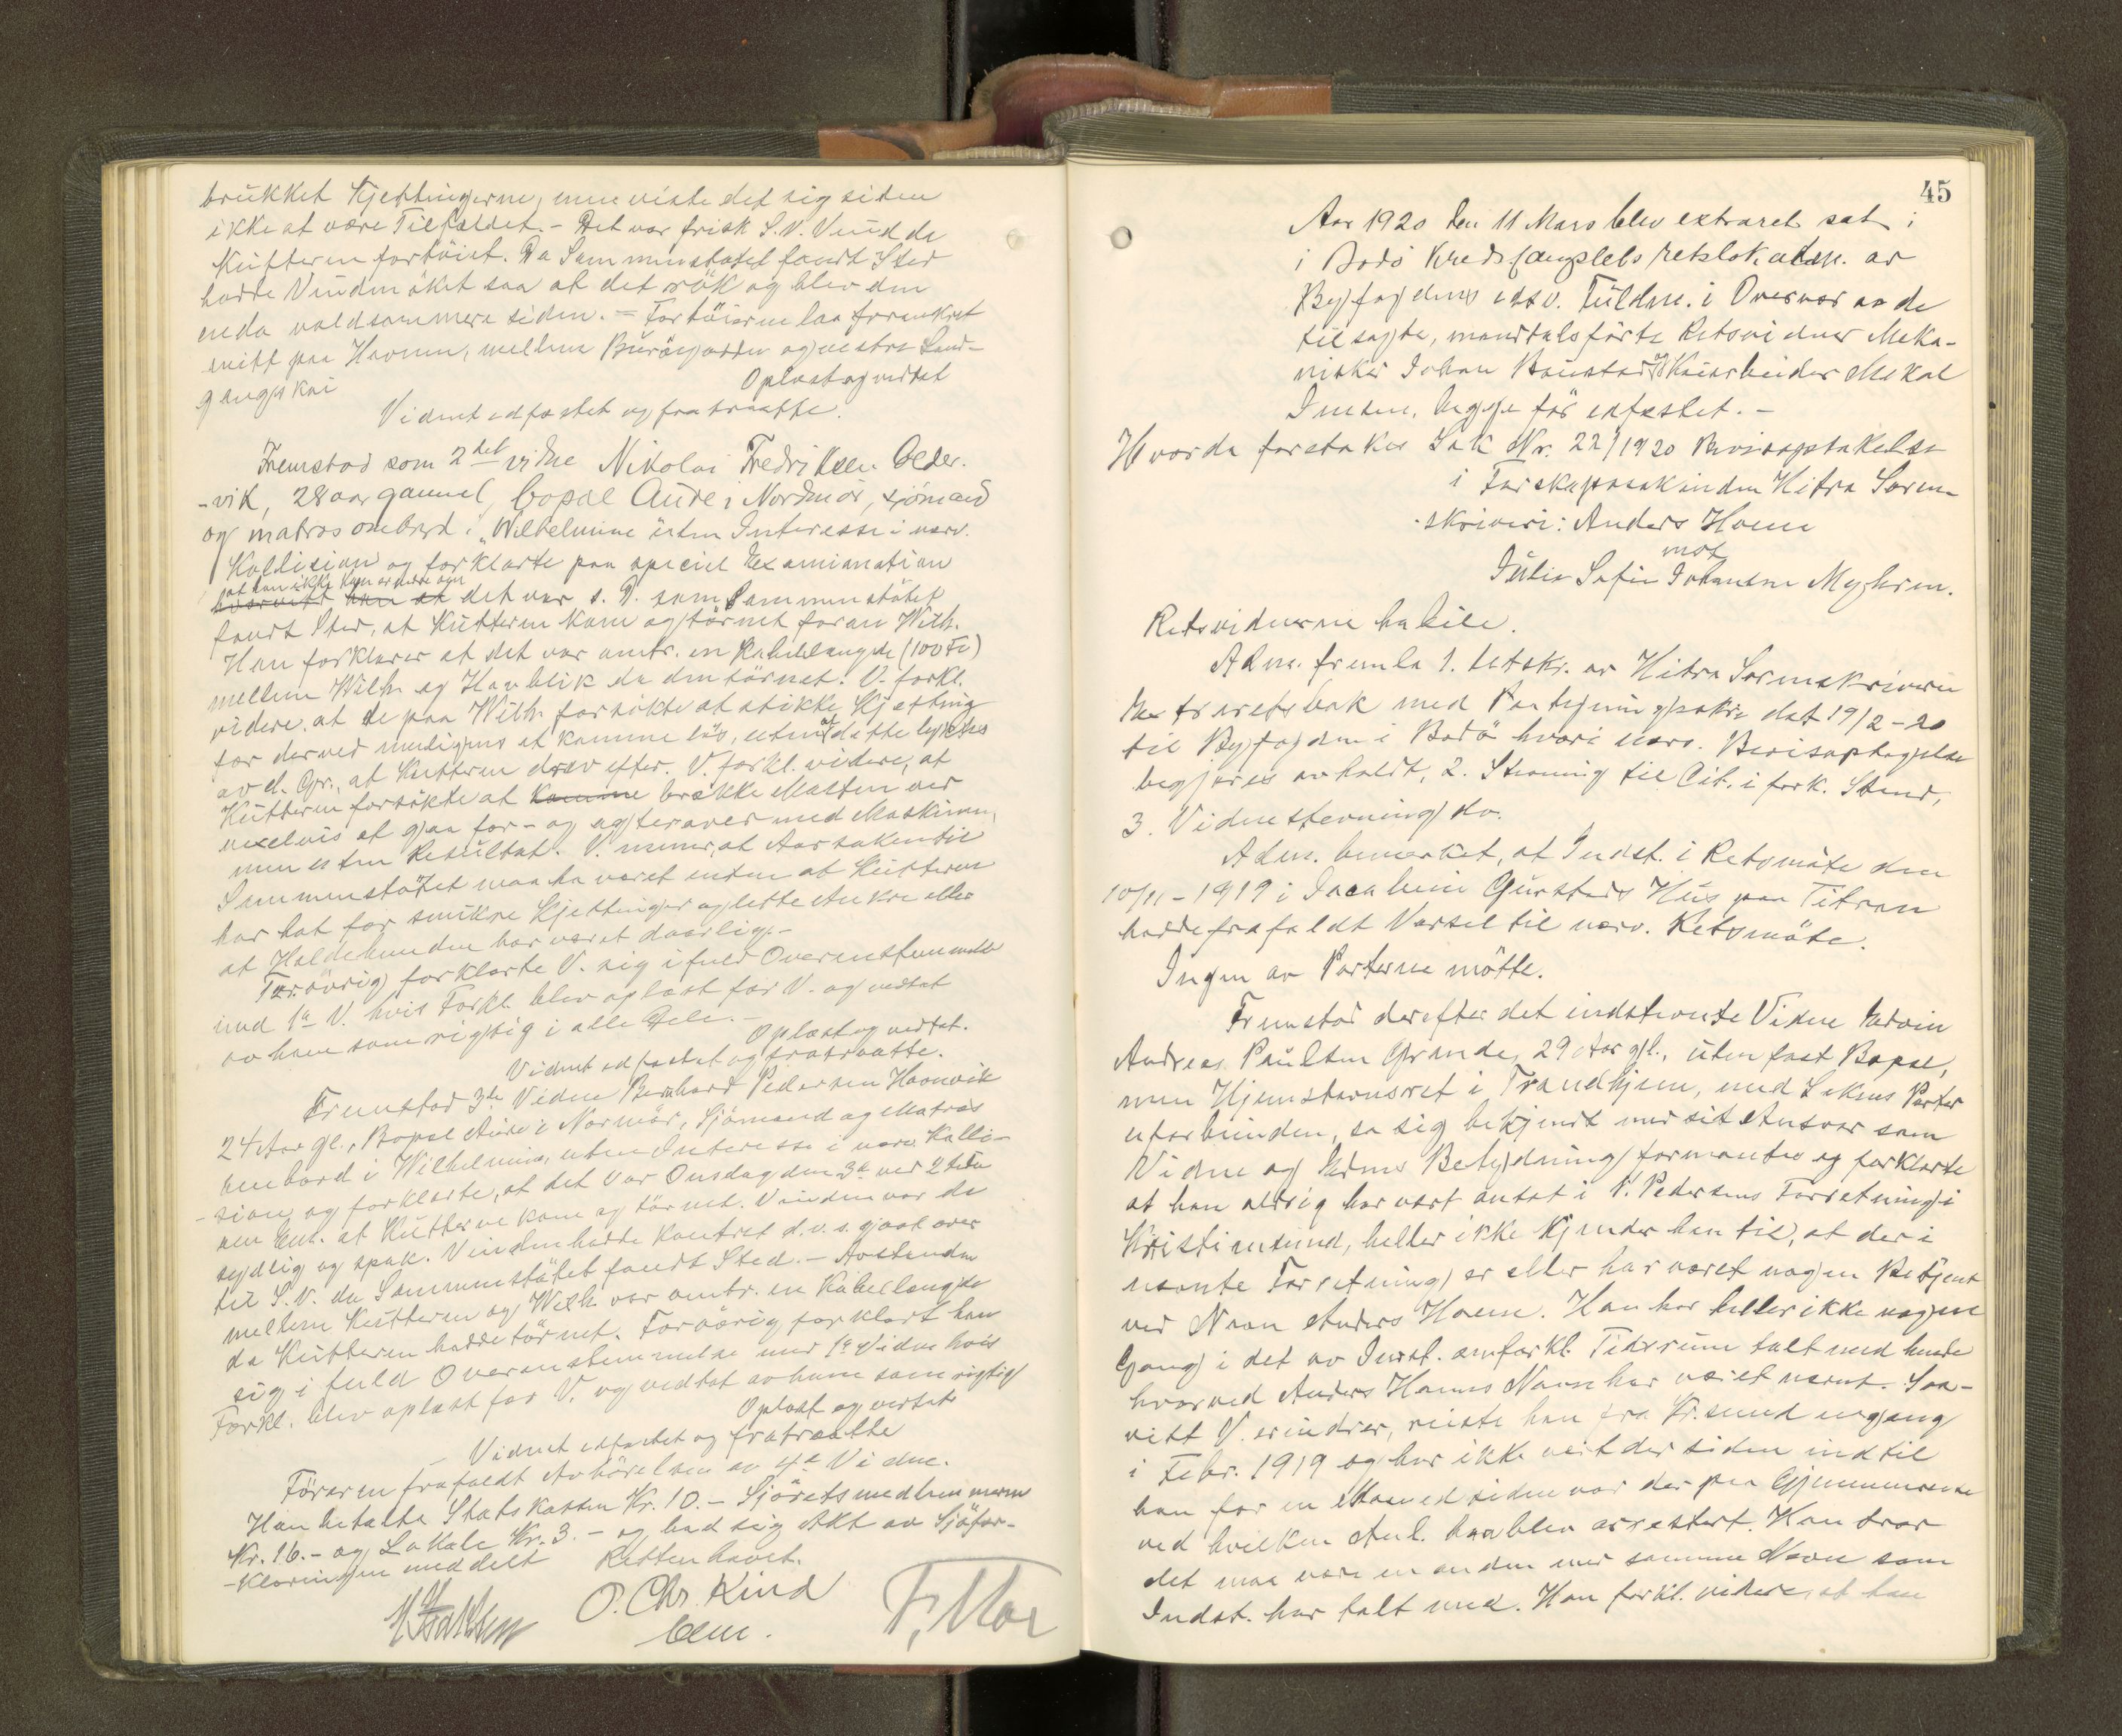 brukket Kjettingerne, men viste det sig siden
ikke at være Tilfældet. - Det var frisk S.V. Vind da
Kutteren fortöiet. Da Sammenstötet fandt Sted
hadde Vinden öket saa at det rök og blev den
enda voldsommere siden. - Fartöierne laa forankret
midt paa Havnen, mellem Buröygarden og vestre Land-
gangskai
Oplæst og vedtat
Vidnet edfæstet og fratraatte.
Fremstod som 2det vidne Nikolai Fredriksen Oeder-
-vik, 28 aar gammel, bopæl Aure i Nordmör, sjömand
og matros ombord i "Wilhelmine uten Interesse i nærv.
Kollision og forklarte paa speciel Examination
at han ikke kan erindre om
hvorvidt han at det var s. D. som Sammenstötet
fandt Sted, at Kutteren kom og törnet foran Wilh.
Han forklarer at det var omtr. en Kabellængde (100 Fv)
mellem Wilh. og Havblik da den törnet. V. forkl.
videre, at de paa Wilh. forsökte at stikke Kjetting
for derved muligens at komme lös, uten at dette lyktes
av d. Gr., at Kutteren drev efter. V. forkl. videre, at
Kutteren forsökte at komme brække Masten ved
vexelvis at gaa for- og agterover med Maskinen,
men uten Resultat. V. mener, at Aarsaken til
Sammenstötet maa ha været enten at Kutteren
har hat for smekre Kjettinger og lette Ankre eller
at Holdebunden har været daarlig. -
Forövrig forklarte V. sig i fuld Overenstemmelse
med 1ste V. hvis Forkl. blev oplæst for V. og vedtat
av ham som rigtig i alle Dele. -
Oplæst og vedtat.
Vidnet edfæstet og fratraatte.
Fremstod 3de Vidne Bernhard Pedersen Hoonvik
24 Aar gl., Bopæl Aure i Normör, Sjömand og Matros
ombord i Wilhelmine, uten Interesse i nærv. Kolli-
-sion og forklarte, at det var Onsdag den 3de ved 2 tiden
om Em. at Kutterne kom og törnet. Vinden var da
sydlig og spak. Vinden hadde kantret d.v.s. gaat over
til S.V. da Sammenstötet fandt Sted. - Avstanden
mellem Kutteren og Wilh. var omtr. en Kabellængde
da Kutteren hadde törnet. Forövrig forklart han
sig i fuld Overenstemmelse med 1ste Vidne hvis
Forkl. blev oplæst for V. og vedtat av ham som rigtig
Oplæst og vedtat
- Vidnet edfæstet og fratraatte
Föreren frafaldt Avhörelsen av 4de Vidne.
Han betalte Statskassen Kr. 10.- Sjöretsmedlemmerne
Kr. 16.- og Lokale Kr. 3. - og bad sig Akt av Sjöfor-
-klaringen meddelt Retten hævet.
O. Chr. Kind
cem.
F. Moe
45
Aar 1920 den 11 Mars blev extraret sat i
i Bodö Kredsfængsels retslokale. av
Byfogdens edsv. Fuldm. i Overvær av de
tilsagte, mandtalsförte Retsvidner Meka-
niker Johan Baustad og Kaiarbeider Mekal
Jensen, begge för edfæstet. -
Hvorda foretokes Sak Nr. 22/1920 Bevisoptakelse
i Farskapssak inden Hitra Soren-
skriveri: Anders Hoem
mot
Julie Sofie Johansen Myhren.
Retsvidnerne habile.
Adm. fremla 1. Utskr. av Hitra Sorenskriveri
Extraretsbok med Paategningsskr. dat 19/2-20
til Byfogden i Bodö hvori nærv. Bevisoptagelse
begjæres avholdt, 2. Stevning til Cit. i fork. Stand,
3. Vidnestevning do.
Adm. bemerket, at Indst. i Retsmöte den
10/11-1919 i Jacobine Gurstads Hus paa Titran
hadde frafaldt Varsel til nærv. Retsmöte.
Ingen av Parterne mötte.
Fremstod derefter det indstevnte Vidne Edvin
Andreas Paulsen Grande, 29 Aar gl., uten fast Bopæl,
men Hjemstavnsret i Trondhjem, med Sakens Parter
uforbunden, sa sig bekjendt med sit Ansvar som
Vidne og Edens Betydning formantes og forklarte
at han aldrig har vært ansat i V. Pedersens Forretning i
Kristiansund, heller ikke kjender han til, at der i
nævnte Forretning er eller har været nogen Betjent
ved Navn Anders Hoem. Han har heller ikke nogen
Gang i det av Indst. omforkl. Tidsrum talt med hende
hvorved Anders Hoems Navn har været nævnt. Saa-
vidt V. erindrer, reiste han fra Kr.sund engang
i Febr. 1919 og har ikke vært der siden indtil
han for en Maaned siden var der paa Gjennemreise
ved hvilken Anl. han blev arrestert. Han tror
det maa være en anden med samme Navn som
Indst. har talt med. Han forkl. videre, at han